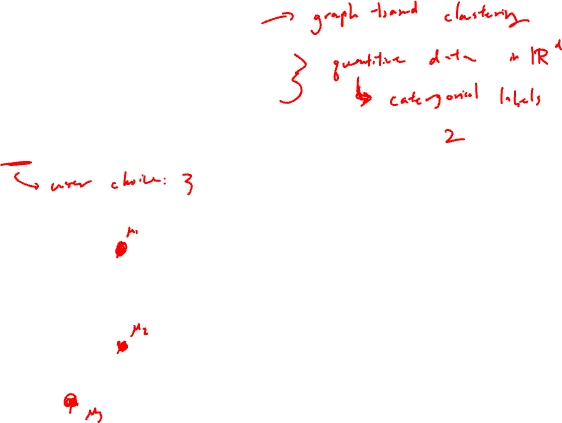 → graph-based clustering
quantitive data in ℝᵈ
↳ categorical labels
2
↳ user choice: 3
μ₁
μ₂
μ₃